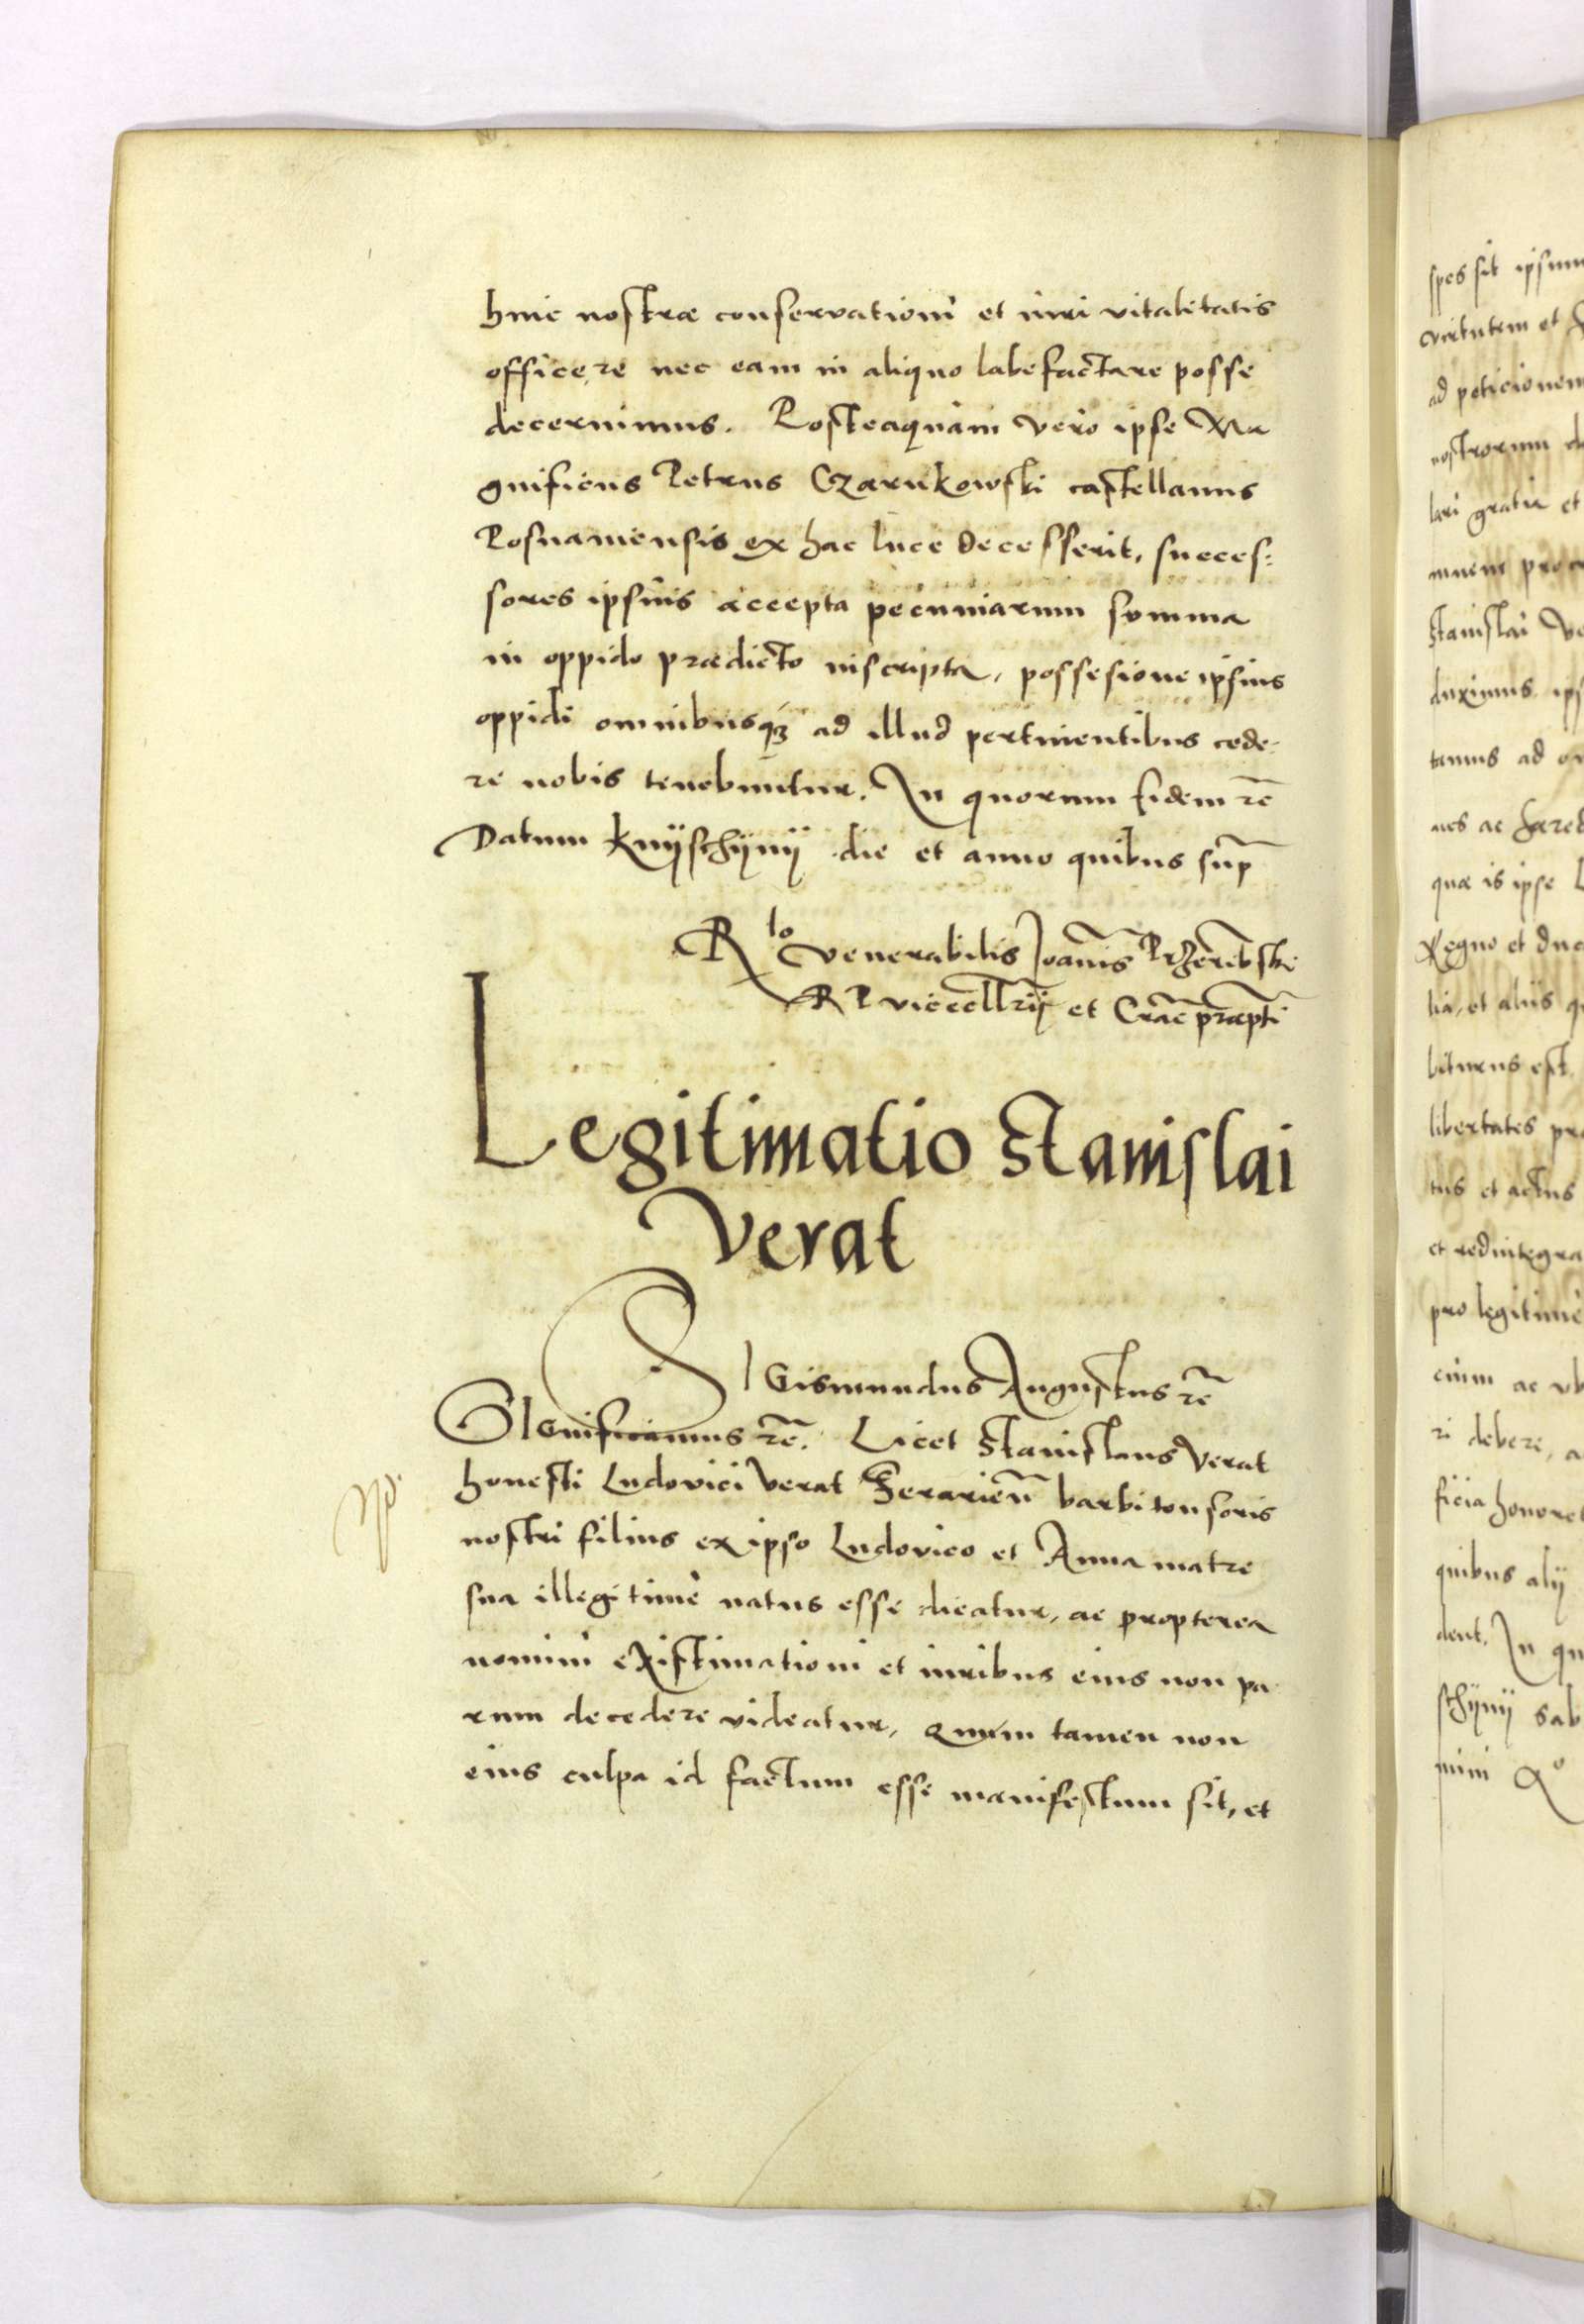 huic nostræ conservationi et iuri vitalitatis
officere nec eam in aliquo labefactare posse
decernimus. Posteaquam vero ipse Ma
gnificus Petrus Czarnkowski castellanus
Posnaniensis ex hac luce decesserit, succes:
sores ipsius accepta pecuniarum summa
in oppido prædicto inscripta, possesione ipsius
oppidi omnibusq3 ad illud pertinentibus cede-
re nobis tenebuntur. In quorum fidem rē
Datum Knÿschÿnÿ die et anno quibus sup
Rlo venerabilis Joanis Przerēbski
RP vicecellrij et Crac præpti
Legitimatio Stanislai
Verat
SIGismundus Augustus rē
SIGnificamus rē. Licet Stanislaus Verat
honesti Ludovici Verat Ferarien barbitonsoris
nostri filius ex ipso Ludovico et Anna matre
sua illegitimè natus esse dicatur, ac propterea
nomini existimationi et iuribus eius non pa
rum decedere videatur, Quum tamen non
eius culpa id factum esse manifestum sit, et
spes sit ipsum
virtutem et
ad peticionem
nostrorum
lari gratia et
Stanislai Ve
duximus ips
tamus ad
quæ is ipse L
Regno et duc
lia, et aliis q
biturus est
libertates pr
tus et actus
et redintegra
pro legitimè
ri debere, a
ficia honore
quibus alij
dent. In qu
schÿnÿ Sab